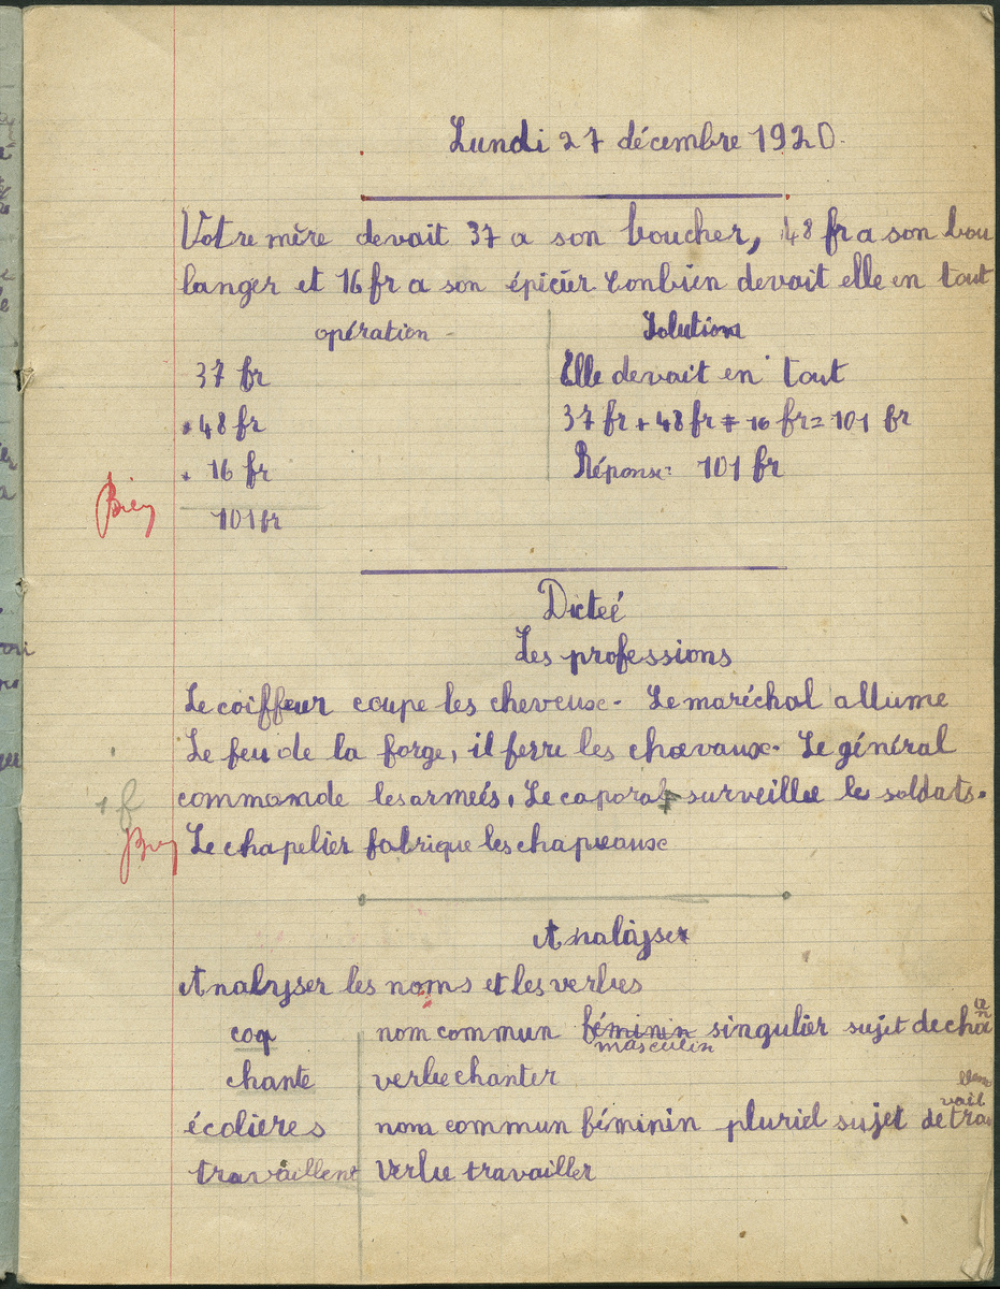 Lundi 27 décembre 1920.
Votre mère devait 37 a son boucher, 48 fr a son bou
langer et 16 fr a son épicier Conbien devait elle en tout
opération
Solution
37 fr
Elle devait en tout
+ 48 fr
37 fr + 48 fr + 16 fr = 101 fr
+ 16 fr
Réponse: 101 fr
Bien
101 fr
Dicteé
Les professions
Le coiffeur coupe les cheveux. Le maréchal allume
Le feu de la forge, il ferre les chevaux. Le général
commande les armeés. Le caporal surveille les soldats.
1 f
Bien
Le chapelier fabrique les chapeaux
Analyser
Analyser les noms et les verbes
coq nom commun féminin singulier sujet de chan
masculin
chante verbe chanter
écolières nom commun féminin pluriel sujet de tra
vail
travaillent Verbe travailler